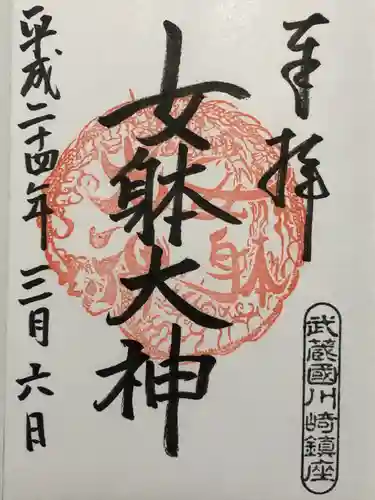 奉拝
武蔵國川崎鎮座
女躰大神
女躰
平成二十四年三月六日